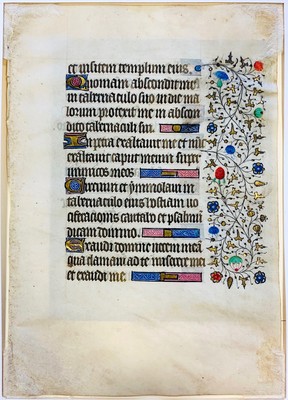 et visitem templum eius.
Quoniam abscondit me
in tabernaculo suo in die ma
lorum protexit me in abscon
dito tabernaculi sui.
In petra exaltauit me et nunc
exaltauit caput meum super
inimicos meos.
Circuiui et ymmolaui in
tabernaculo eius hostiam vo
ciferacionis cantabo et psalmū
dicam domino.
Exaudi domine uocem meam
qua clamaui ad te miserere mei
et exaudi me.